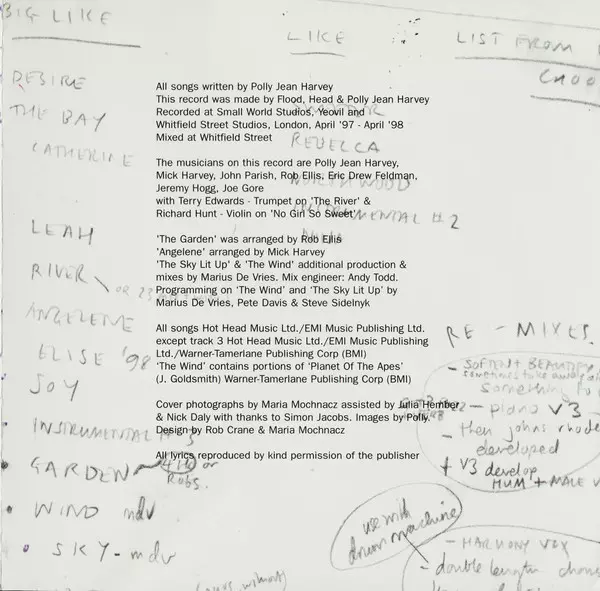 BIG LIKE
LIKE
LIST FROM
CHOO
DESIRE
THE BAY
CATHERINE
REBECCA
NORTHWOOD
INSTRUMENTAL #2
NINA
LEAH
RIVER
OR 23
ANGELENE
ELISE '98
JOY
INSTRUMENTAL #3
GARDEN - 4TK or
Robs.
WIND mdv
SKY - mdv
All songs written by Polly Jean Harvey
This record was made by Flood, Head & Polly Jean Harvey
Recorded at Small World Studios, Yeovil and
Whitfield Street Studios, London, April '97 - April '98
Mixed at Whitfield Street
The musicians on this record are Polly Jean Harvey,
Mick Harvey, John Parish, Rob Ellis, Eric Drew Feldman,
Jeremy Hogg, Joe Gore
with Terry Edwards - Trumpet on 'The River' &
Richard Hunt - Violin on 'No Girl So Sweet'
'The Garden' was arranged by Rob Ellis
'Angelene' arranged by Mick Harvey
'The Sky Lit Up' & 'The Wind' additional production &
mixes by Marius De Vries. Mix engineer: Andy Todd.
Programming on 'The Wind' and 'The Sky Lit Up' by
Marius De Vries, Pete Davis & Steve Sidelnyk
All songs Hot Head Music Ltd./EMI Music Publishing Ltd.
except track 3 Hot Head Music Ltd./EMI Music Publishing
Ltd./Warner-Tamerlane Publishing Corp (BMI)
'The Wind' contains portions of 'Planet Of The Apes'
(J. Goldsmith) Warner-Tamerlane Publishing Corp (BMI)
Cover photographs by Maria Mochnacz assisted by Julia Hember
& Nick Daly with thanks to Simon Jacobs. Images by Polly.
Design by Rob Crane & Maria Mochnacz
All lyrics reproduced by kind permission of the publisher
RE - MIXES.
- SOFTEN + BEAUTIFY
sometimes take away
something to
- piano V3 -
- then johns rhode
developed
+ V3 develop
HUM + MALE V
use with
drum machine
- HARMONY VOX
- double length chorus